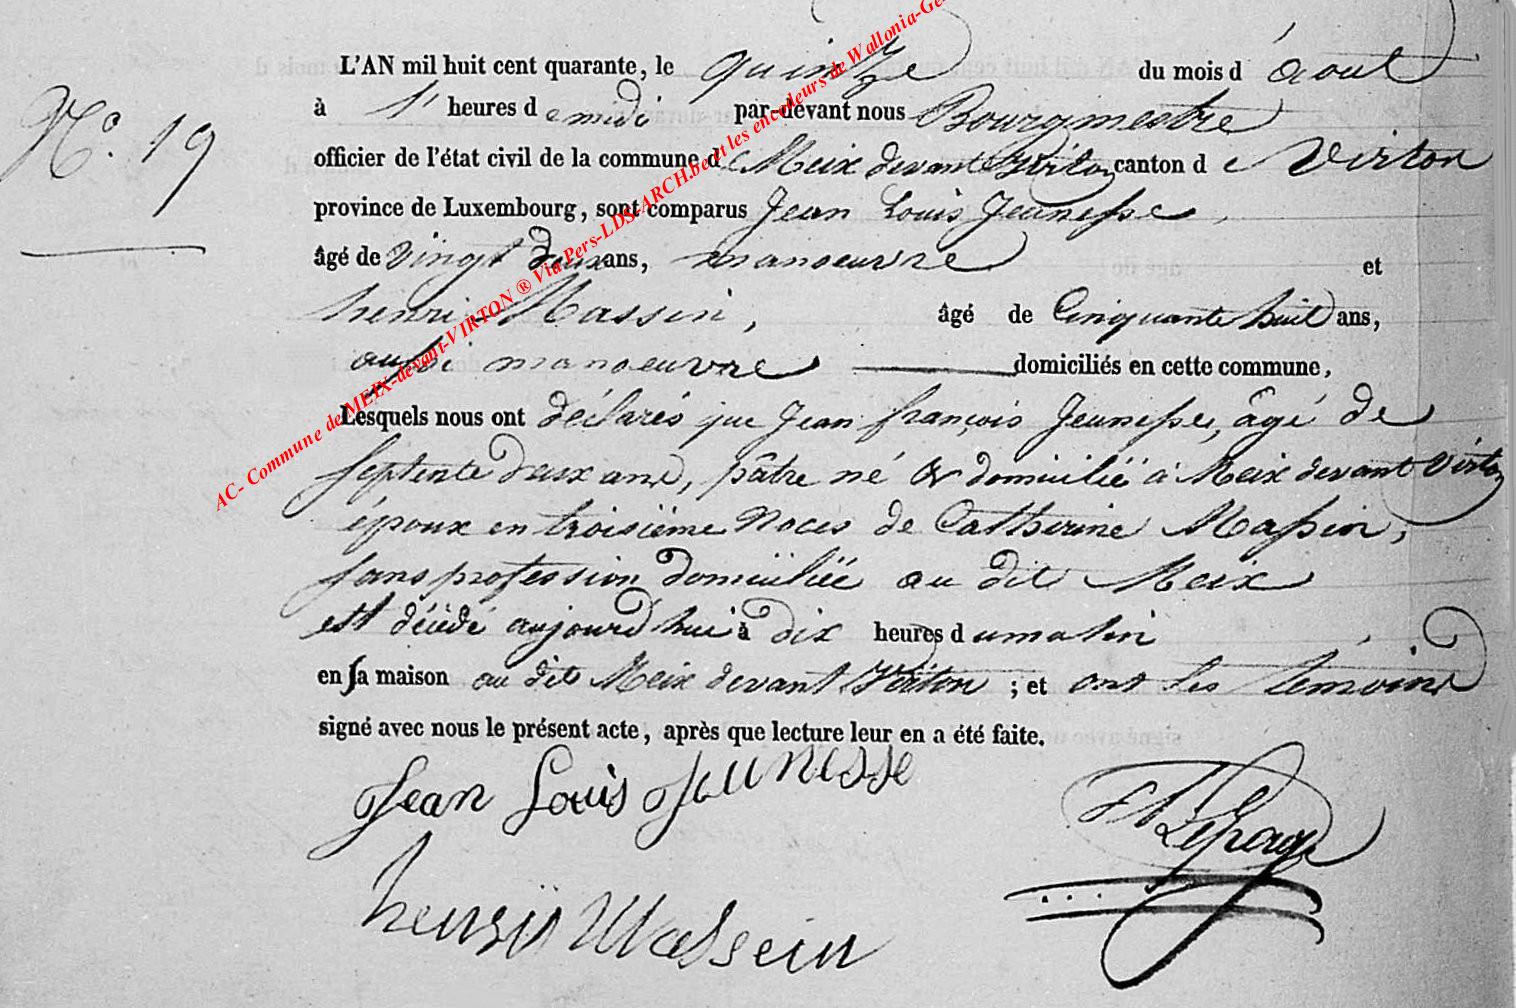 N.° 19
L'AN mil huit cent quarante, le quintze du mois d'aout
à 1' heures de midi par-devant nous Bourgmestre
officier de l'état civil de la commune de Meix devant Virton canton de Virton
province de Luxembourg, sont comparus Jean Louis Jeunesse,
âgé de vingt deux ans, manoeuvre et
henri Massin, âgé de Cinquante huit ans,
aussi manoeuvre domiciliés en cette commune,
Lesquels nous ont déclarés que Jean françois Jeunesse, âgé de
septente deux ans, pâtre né & domicilié à Meix devant Virton
époux en troisiéme Noces de Catherine Massin,
sans profession domiciliée au dit Meix
est décédé aujourd'hui à dix heures du matin
en sa maison au dit Meix devant Virton ; et ont les témoins
signé avec nous le présent acte, après que lecture leur en a été faite.
Jean Louis Jeunesse
Lepage
henry Massein
AC- Commune de MEIX-devant-VIRTON ® Via Pers-LDS-ARCH.be et les encodeurs de Wallonia-Ge